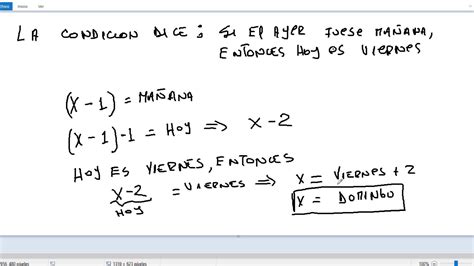 LA CONDICION DICE: SI EL AYER FUESE MAÑANA,
ENTONCES HOY ES VIERNES
(X-1) = MAÑANA
(X-1)-1 = HOY ⇒ X-2
HOY ES VIERNES, ENTONCES
X-2 = VIERNES ⇒ X = VIERNES + 2
HOY
X = DOMINGO